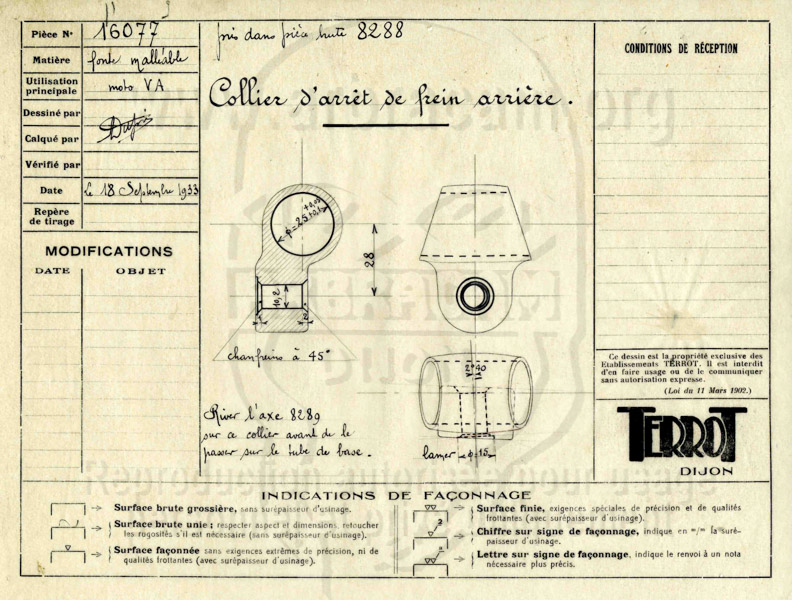 Pièce N° 16077
Matière fonte malléable
Utilisation principale moto VA
Dessiné par
Calqué par
Vérifié par
Date le 18 Septembre 1933
Repère de tirage
MODIFICATIONS
DATE OBJET
pris dans pièce brute 8288
Collier d'arrêt de frein arrière.
φ=25 +0,05 +0,1
28
10,2
chanfreins à 45°
River l'axe 8289
sur ce collier avant de le
passer sur le tube de base.
2°40
lamer φ=15
CONDITIONS DE RÉCEPTION
Ce dessin est la propriété exclusive des
Etablissements TERROT. Il est interdit
d'en faire usage ou de le communiquer
sans autorisation expresse.
(Loi du 11 Mars 1902.)
TERROT
DIJON
INDICATIONS DE FAÇONNAGE
Surface brute grossière, sans surépaisseur d'usinage.
Surface brute unie; respecter aspect et dimensions, retoucher
les rugosités s'il est nécessaire (sans surépaisseur d'usinage).
Surface façonnée sans exigences extrêmes de précision, ni de
qualités frottantes (avec surépaisseur d'usinage).
Surface finie, exigences spéciales de précision et de qualités
frottantes (avec surépaisseur d'usinage).
Chiffre sur signe de façonnage, indique en m/m la suré-
paisseur d'usinage.
Lettre sur signe de façonnage, indique le renvoi à un nota
nécessaire plus précis.